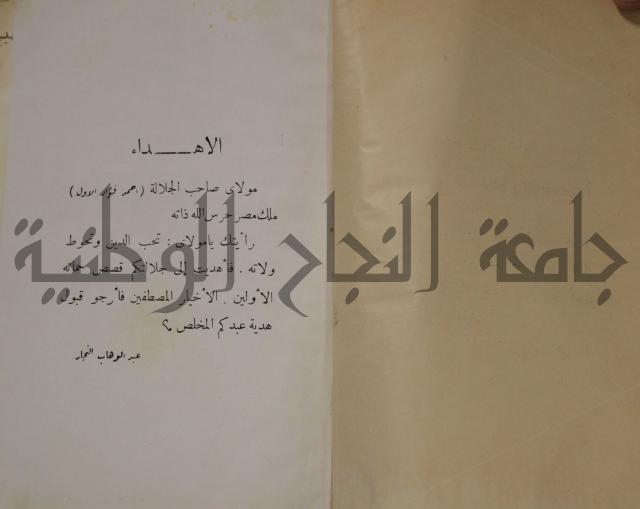 الاهـــداء
مولاى صاحب الجلالة (احمد فؤاد الاول)
ملك مصر حرس الله ذاته
رأيتك يا مولاى : تحب الدين وتحوط
ولاته . فأهديت إلى جلالتكم قصص حماته
الأولين . الأخيار المصطفين فأرجو قبول
هدية عبدكم المخلص
عبد الوهاب النجار
جامعة النجاح الوطنية